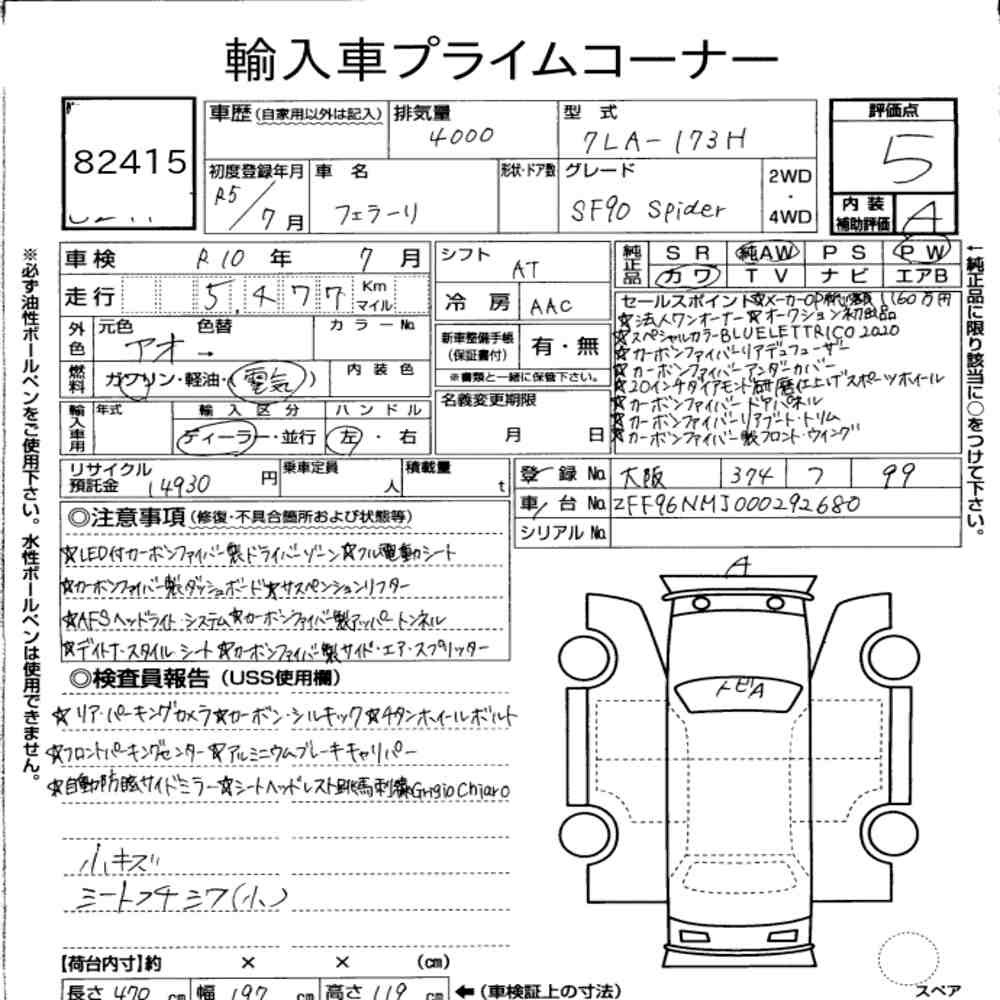 輸入車プライムコーナー
82415
車歴(自家用以外は記入)
排気量
4000
型式
7LA-173H
評価点
5
初度登録年月
R5/7月
車名
フェラーリ
形状・ドア数
グレード
SF90 Spider
2WD
・
4WD
内装
補助評価
A
※必ず油性ボールペンをご使用下さい。水性ボールペンは使用できません。
車検 R10年 7月
走行 5,477 Km マイル
外色
元色 色替
アオ→
カラーNo
燃料
ガソリン・軽油・(電気)
内装色
輸入車用
年式
輸入区分
ディーラー・並行
ハンドル
左・右
シフト
AT
冷房 AAC
新車整備手帳
(保証書付)
有・無
※書類と一緒に保管下さい。
名義変更期限
月 日
純正品
SR 純AW PS PW
カワ TV ナビ エアB
←純正品に限り該当に○をつけて下さい。
セールスポイント☆メーカーOP総額1,160万円
☆法人ワンオーナー☆オークション初出品
☆スペシャルカラーBLUELETTRICO2020
☆カーボンファイバーリアデュフューザー
☆カーボンファイバーアンダーカバー
☆20インチダイアモンド研磨仕上げスポーツホイール
☆カーボンファイバードアパネル
☆カーボンファイバーリアブート・トリム
☆カーボンファイバー製フロント・ウイング
リサイクル
預託金 14930円
乗車定員
人
積載量
t
登録No 大阪 374 フ 99
車台No ZFF96NMJ000292680
シリアルNo
◎注意事項(修復・不具合箇所および状態等)
☆LED付カーボンファイバー製ドライバーゾーン☆フル電動シート
☆カーボンファイバー製ダッシュボード☆サスペンションリフター
☆AFSヘッドライト・システム☆カーボンファイバー製アッパートンネル
☆デイトナ・スタイルシート☆カーボンファイバー製サイド・エア・スプリッター
◎検査員報告(USS使用欄)
☆リア・パーキングカメラ☆カーボン・シルキック☆チタンホイールボルト
☆フロントパーキングセンター☆アルミニウムブレーキキャリパー
☆自動防眩サイドミラー☆シートヘッドレスト跳馬刺繍Grigio Chiaro
小キズ
シートフチシワ(小)
A
トビA
スペア
【荷台内寸】約 × × (cm)
長さ 470 cm 幅 197 cm 高さ 119 cm ←(車検証上の寸法)